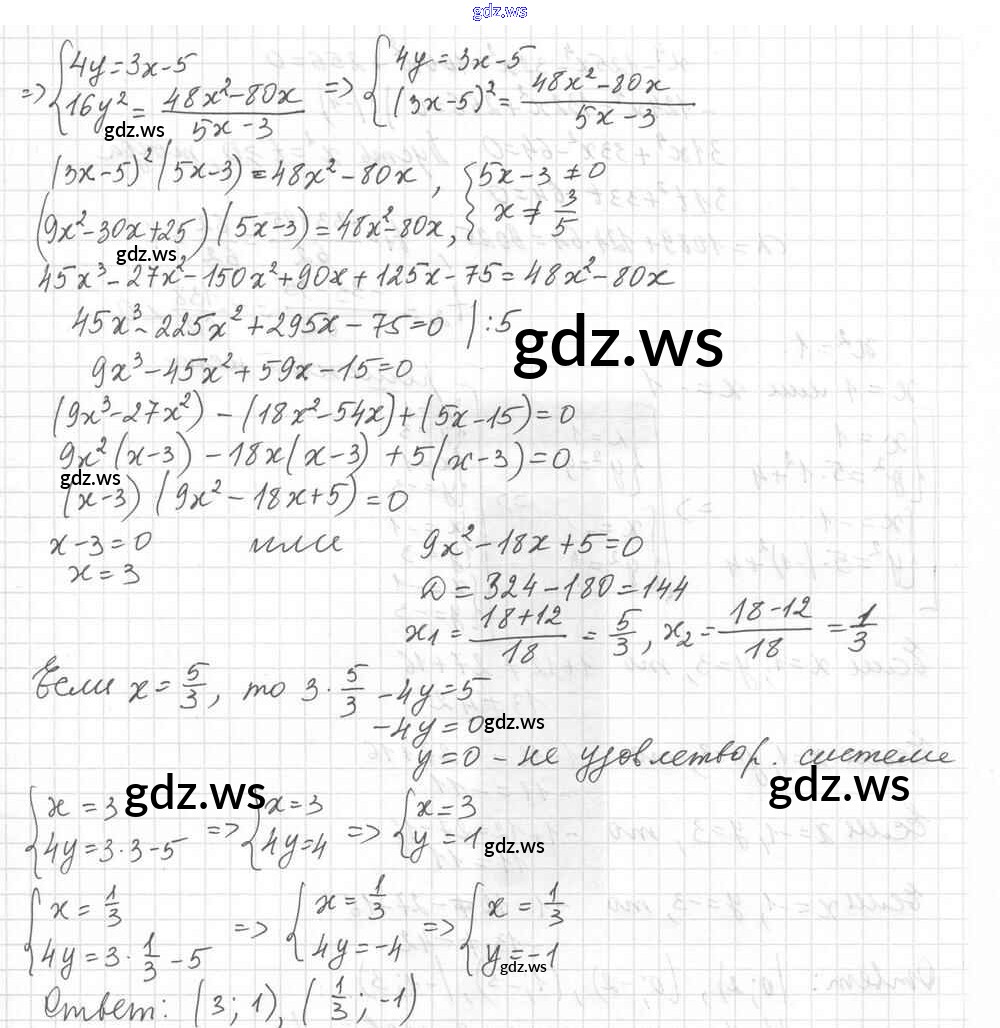 gdz.ws
=> { 4y = 3x - 5 => { 4y = 3x - 5
16y² = (48x² - 80x)/(5x - 3) (3x - 5)² = (48x² - 80x)/(5x - 3)
gdz.ws
(3x - 5)² (5x - 3) = 48x² - 80x , { 5x - 3 ≠ 0
(9x² - 30x + 25) (5x - 3) = 48x² - 80x, x ≠ 3/5
gdz.ws
45x³ - 27x² - 150x² + 90x + 125x - 75 = 48x² - 80x
45x³ - 225x² + 295x - 75 = 0 | :5
gdz.ws
9x³ - 45x² + 59x - 15 = 0
(9x³ - 27x²) - (18x² - 54x) + (5x - 15) = 0
9x² (x - 3) - 18x (x - 3) + 5 (x - 3) = 0
gdz.ws
(x - 3) (9x² - 18x + 5) = 0
x - 3 = 0 или 9x² - 18x + 5 = 0
x = 3
D = 324 - 180 = 144
x₁ = (18 + 12)/18 = 5/3 , x₂ = (18 - 12)/18 = 1/3
Если x = 5/3, то 3 · 5/3 - 4y = 5
- 4y = 0
gdz.ws
y = 0 - не удовлетвор. системе
gdz.ws
gdz.ws
{ x = 3 => { x = 3 => { x = 3
4y = 3·3 - 5 4y = 4 y = 1
gdz.ws
{ x = 1/3 => { x = 1/3 => { x = 1/3
4y = 3 · 1/3 - 5 4y = -4 y = -1
gdz.ws
Ответ: (3; 1), (1/3; -1)